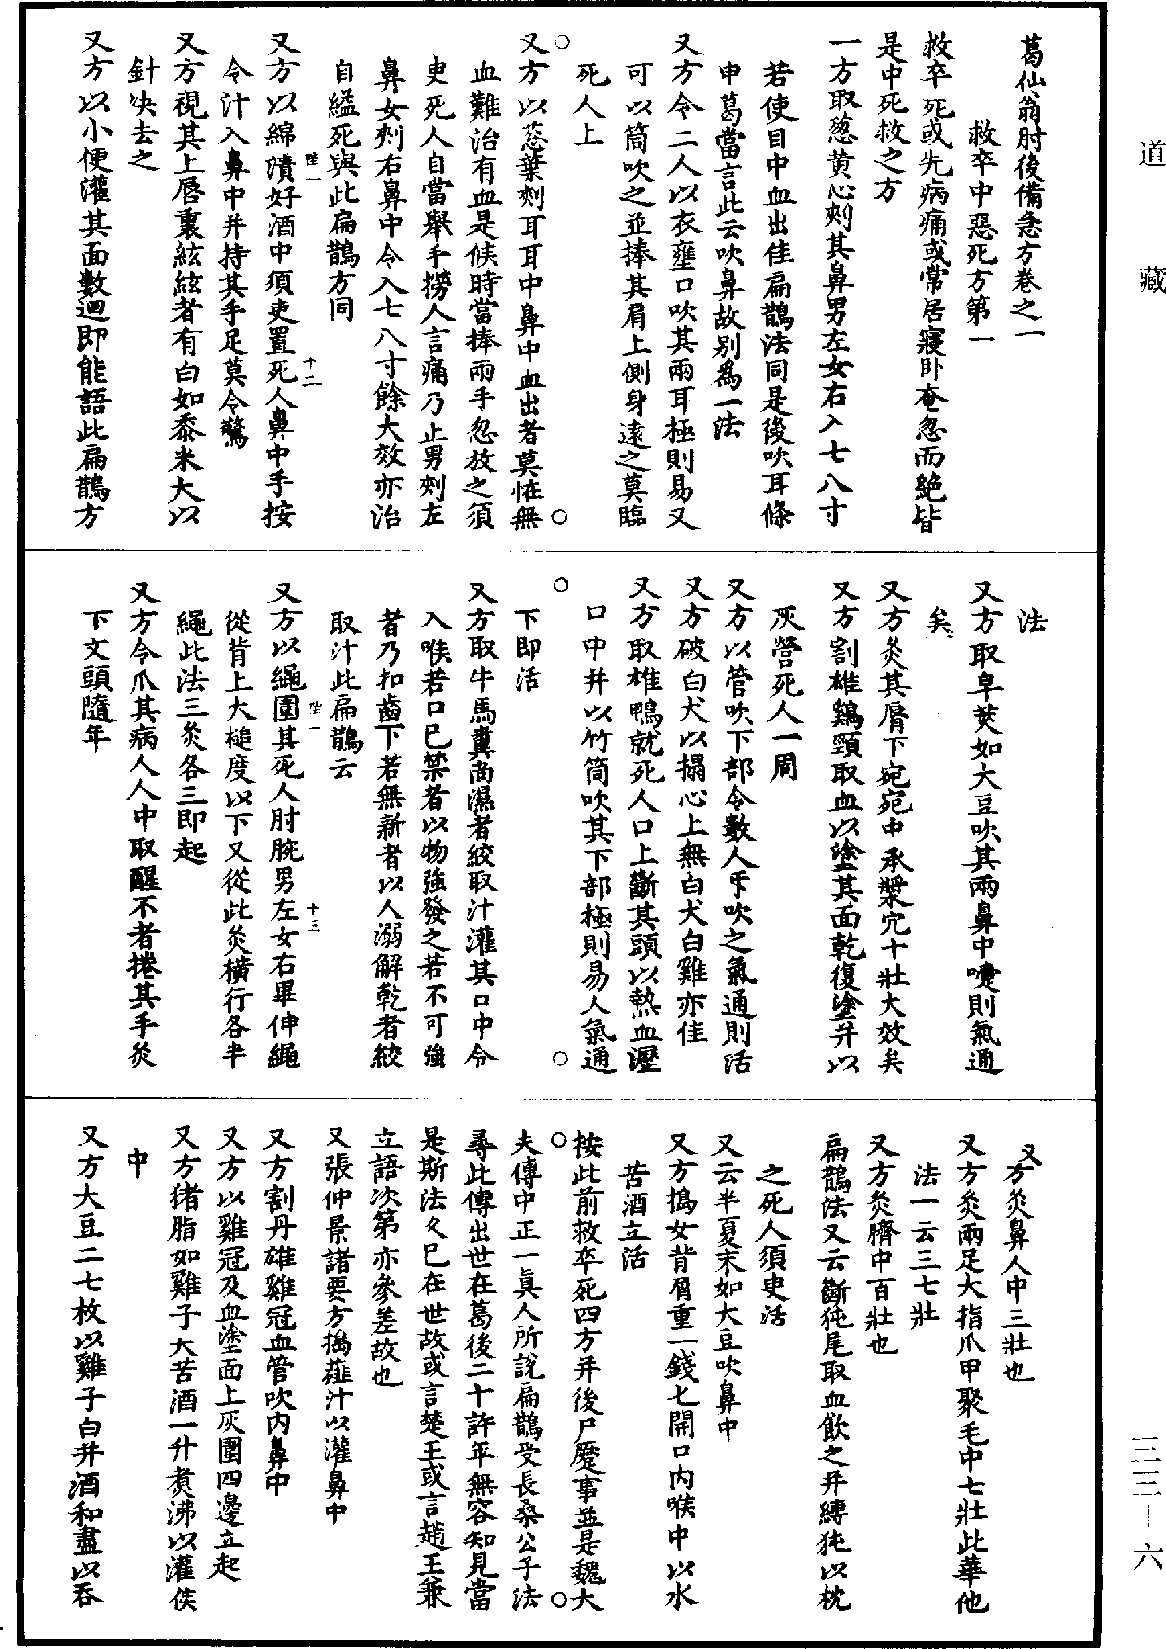 道藏
葛仙翁肘後備急方卷之一
救卒中惡死方第一
救卒死或先病痛或常居寢臥奄忽而絕皆
是中死救之方
一方取葱黄心刺其鼻男左女右入七八寸
若使目中血出佳扁鵲法同是後吹耳條
中葛當言此云吹鼻故别爲一法
又方令二人以衣壅口吹其兩耳極則易又
可以筒吹之並捧其肩上側身遠之莫臨
死人上
又方以葱葉刺耳耳中鼻中血出者莫怪無
血難治有血是候時當捧兩手忽放之須
㬰死人自當舉手撈人言痛乃止男刺左
鼻女刺右鼻中令入七八寸餘大效亦治
自縊死與此扁鵲方同
又方以綿漬好酒中須㬰置死人鼻中手按
令汁入鼻中并持其手足莫令驚
又方視其上唇裏絃絃者有白如黍米大以
針決去之
又方以小便灌其面數迴即能語此扁鵲方
陞一
十二
法
又方取皁莢如大豆吹其兩鼻中嚏則氣通
矣
又方灸其脣下宛宛中承漿穴十壯大效矣
又方割雄鷄頸取血以塗其面乾復塗并以
灰營死人一周
又方以管吹下部令數人互吹之氣通則活
又方破白犬以搨心上無白犬白雞亦佳
又方取雄鴨就死人口上斷其頭以熱血瀝
口中并以竹筒吹其下部極則易人氣通
下即活
又方取牛馬糞尚濕者絞取汁灌其口中令
入喉若口已禁者以物強發之若不可強
者乃扣齒下若無新者以人溺解乾者絞
取汁此扁鵲云
又方以繩圍其死人肘腕男左女右畢伸繩
從背上大槌度以下又從此灸橫行各半
繩此法三灸各三即起
又方令爪其病人人中取醒不者捲其手灸
下文頭隨年
陞一
十三
又方灸鼻人中三壯也
又方灸兩足大指爪甲聚毛中七壯此華他
法一云三七壯
又方灸臍中百壯也
扁鵲法又云斷㹠尾取血飲之并縛㹠以枕
之死人須㬰活
又云半夏末如大豆吹鼻中
又方搗女青屑重一錢匕開口内喉中以水
苦酒立活
按此前救卒死四方并後尸蹷事並是魏大
夫傳中正一眞人所說扁鵲受長桑公子法
尋此傳出世在葛後二十許年無容知見當
是斯法久已在世故或言楚王或言趙王兼
立語次第亦參差故也
又張仲景諸要方搗薤汁以灌鼻中
又方割丹雄雞冠血管吹内鼻中
又方以雞冠及血塗面上灰圍四邊立起
又方猪脂如雞子大苦酒一升煑沸以灌喉
中
又方大豆二七枚以雞子白并酒和盡以吞
三三－六